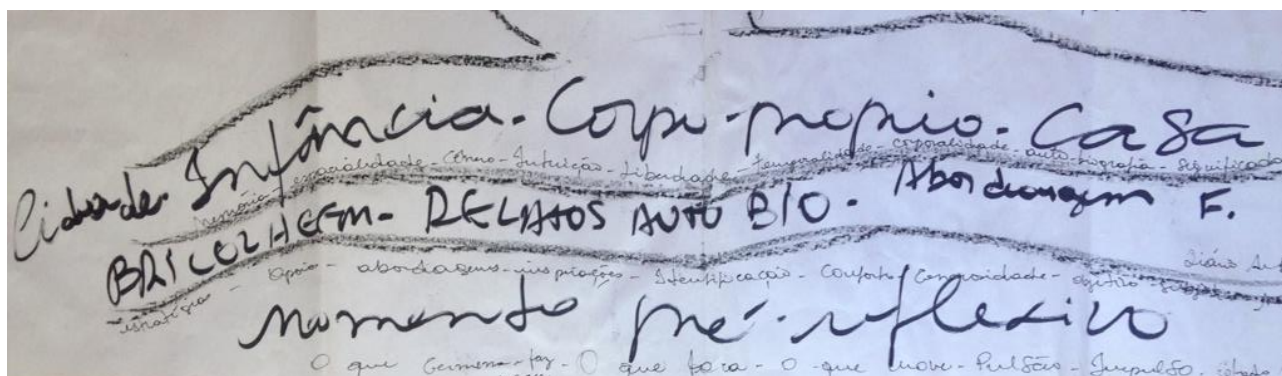 Cidade - Infância - Corpo - próprio - Casa
memória - espacialidade - Gênero - Intuição - Liberdade - temporalidade - corporalidade - auto-biografia - Significado
BRICOLHEEM - RELATOS AUTO BIO - Abordagem F.
Diário
estratégias - apoio - abordagens - inspirações - Identificação - Conforto -
momento pré-reflexivo
O que - faz - O que fora - O que move - Pulsão - Impulsão - estado